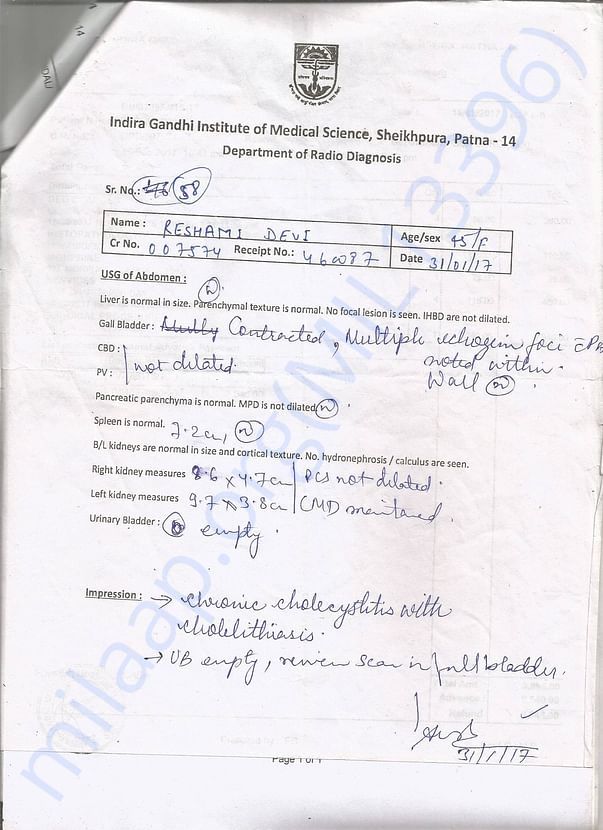 Indira Gandhi Institute of Medical Science, Sheikhpura, Patna - 14
Department of Radio Diagnosis
Sr. No.: 58
Name : RESHAMI DEVI Age/sex 45/F
Cr No. 007574 Receipt No.: 46087 Date 31/01/17
USG of Abdomen :
N
Liver is normal in size. Parenchymal texture is normal. No focal lesion is seen. IHBD are not dilated.
Gall Bladder : Contracted, Multiple echogenic foci
noted within.
Wall N.
CBD :
PV : not dilated.
Pancreatic parenchyma is normal. MPD is not dilated N.
Spleen is normal. 7.2cm, N
B/L kidneys are normal in size and cortical texture. No. hydronephrosis / calculus are seen.
Right kidney measures 8.6 x 4.7cm PCS not dilated.
Left kidney measures 9.7 x 3.8cm CMD maintained.
Urinary Bladder : empty.
Impression : → chronic cholecystitis with
cholelithiasis.
→ UB empty, review scan in full bladder.
31/1/17
Page 1 of 1
milaap.org(MIL113396)